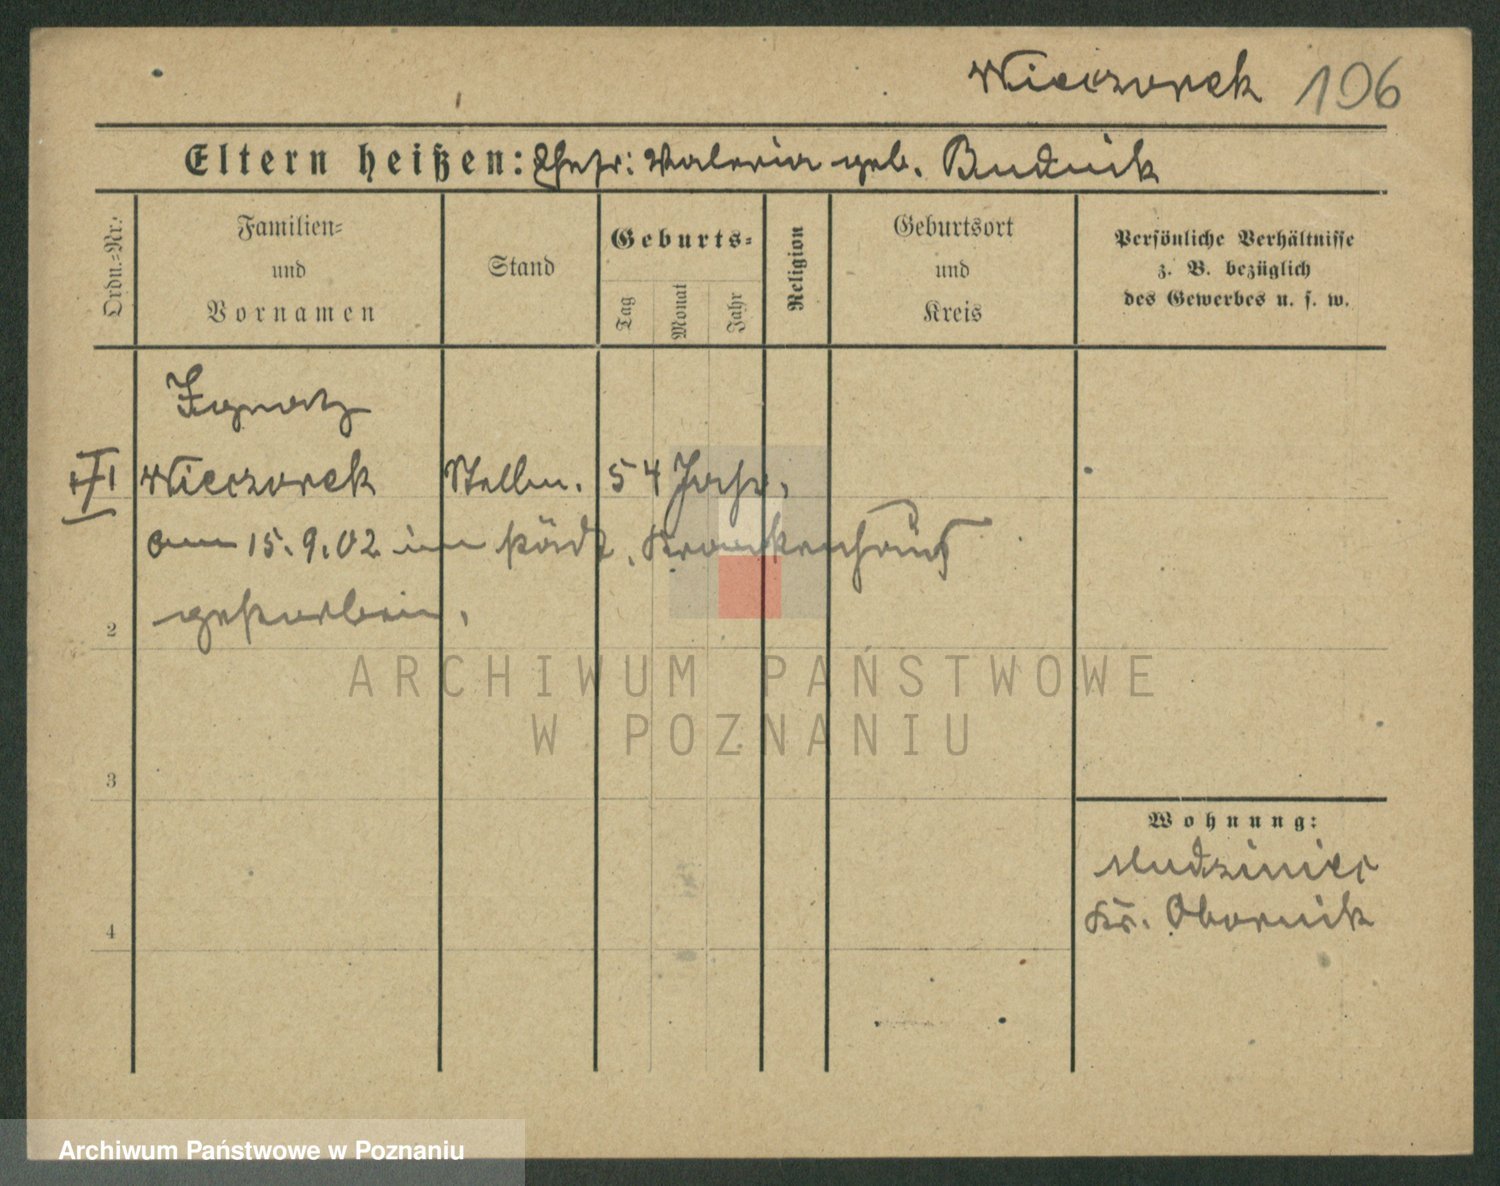 Wieczorek 106
Eltern heißen: Ehefr: Valeria geb. Budnik
Ordn.=Nr.
Familien=
und
Vornamen
Stand
Geburts=
Tag
Monat
Jahr
Religion
Geburtsort
und
Kreis
Persönliche Verhältnisse
z. B. bezüglich
des Gewerbes u. s. w.
Ignatz
Wieczorek Stellm. 54 Jahr,
am 15.9.02 im städt. Krankenhaus
gestorben.
2
3
4
Wohnung:
Mudziniec
Kr. Obornik
ARCHIWUM PAŃSTWOWE
W POZNANIU
Archiwum Państwowe w Poznaniu